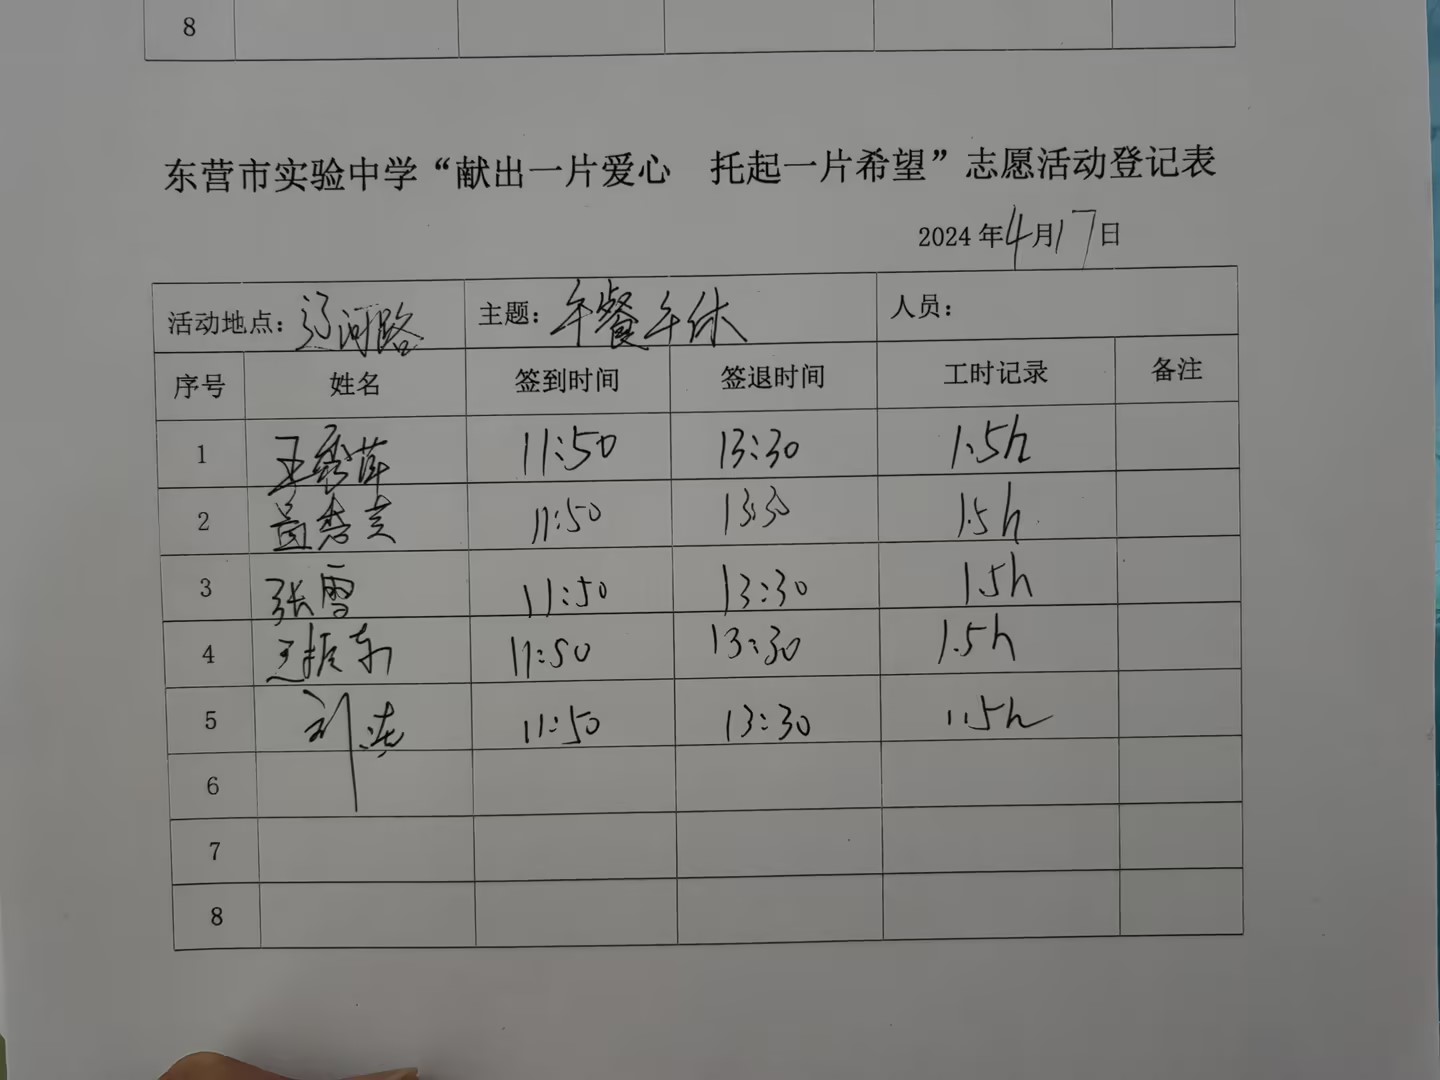 8
东营市实验中学“献出一片爱心 托起一片希望”志愿活动登记表
2024年4月17日
活动地点：辽河路 主题：午餐午休 人员：
序号 姓名 签到时间 签退时间 工时记录 备注
1 王秀萍 11:50 13:30 1.5h
2 11:50 13:30 1.5h
3 张雪 11:50 13:30 1.5h
4 王振东 11:50 13:30 1.5h
5 刘 11:50 13:30 1.5h
6
7
8